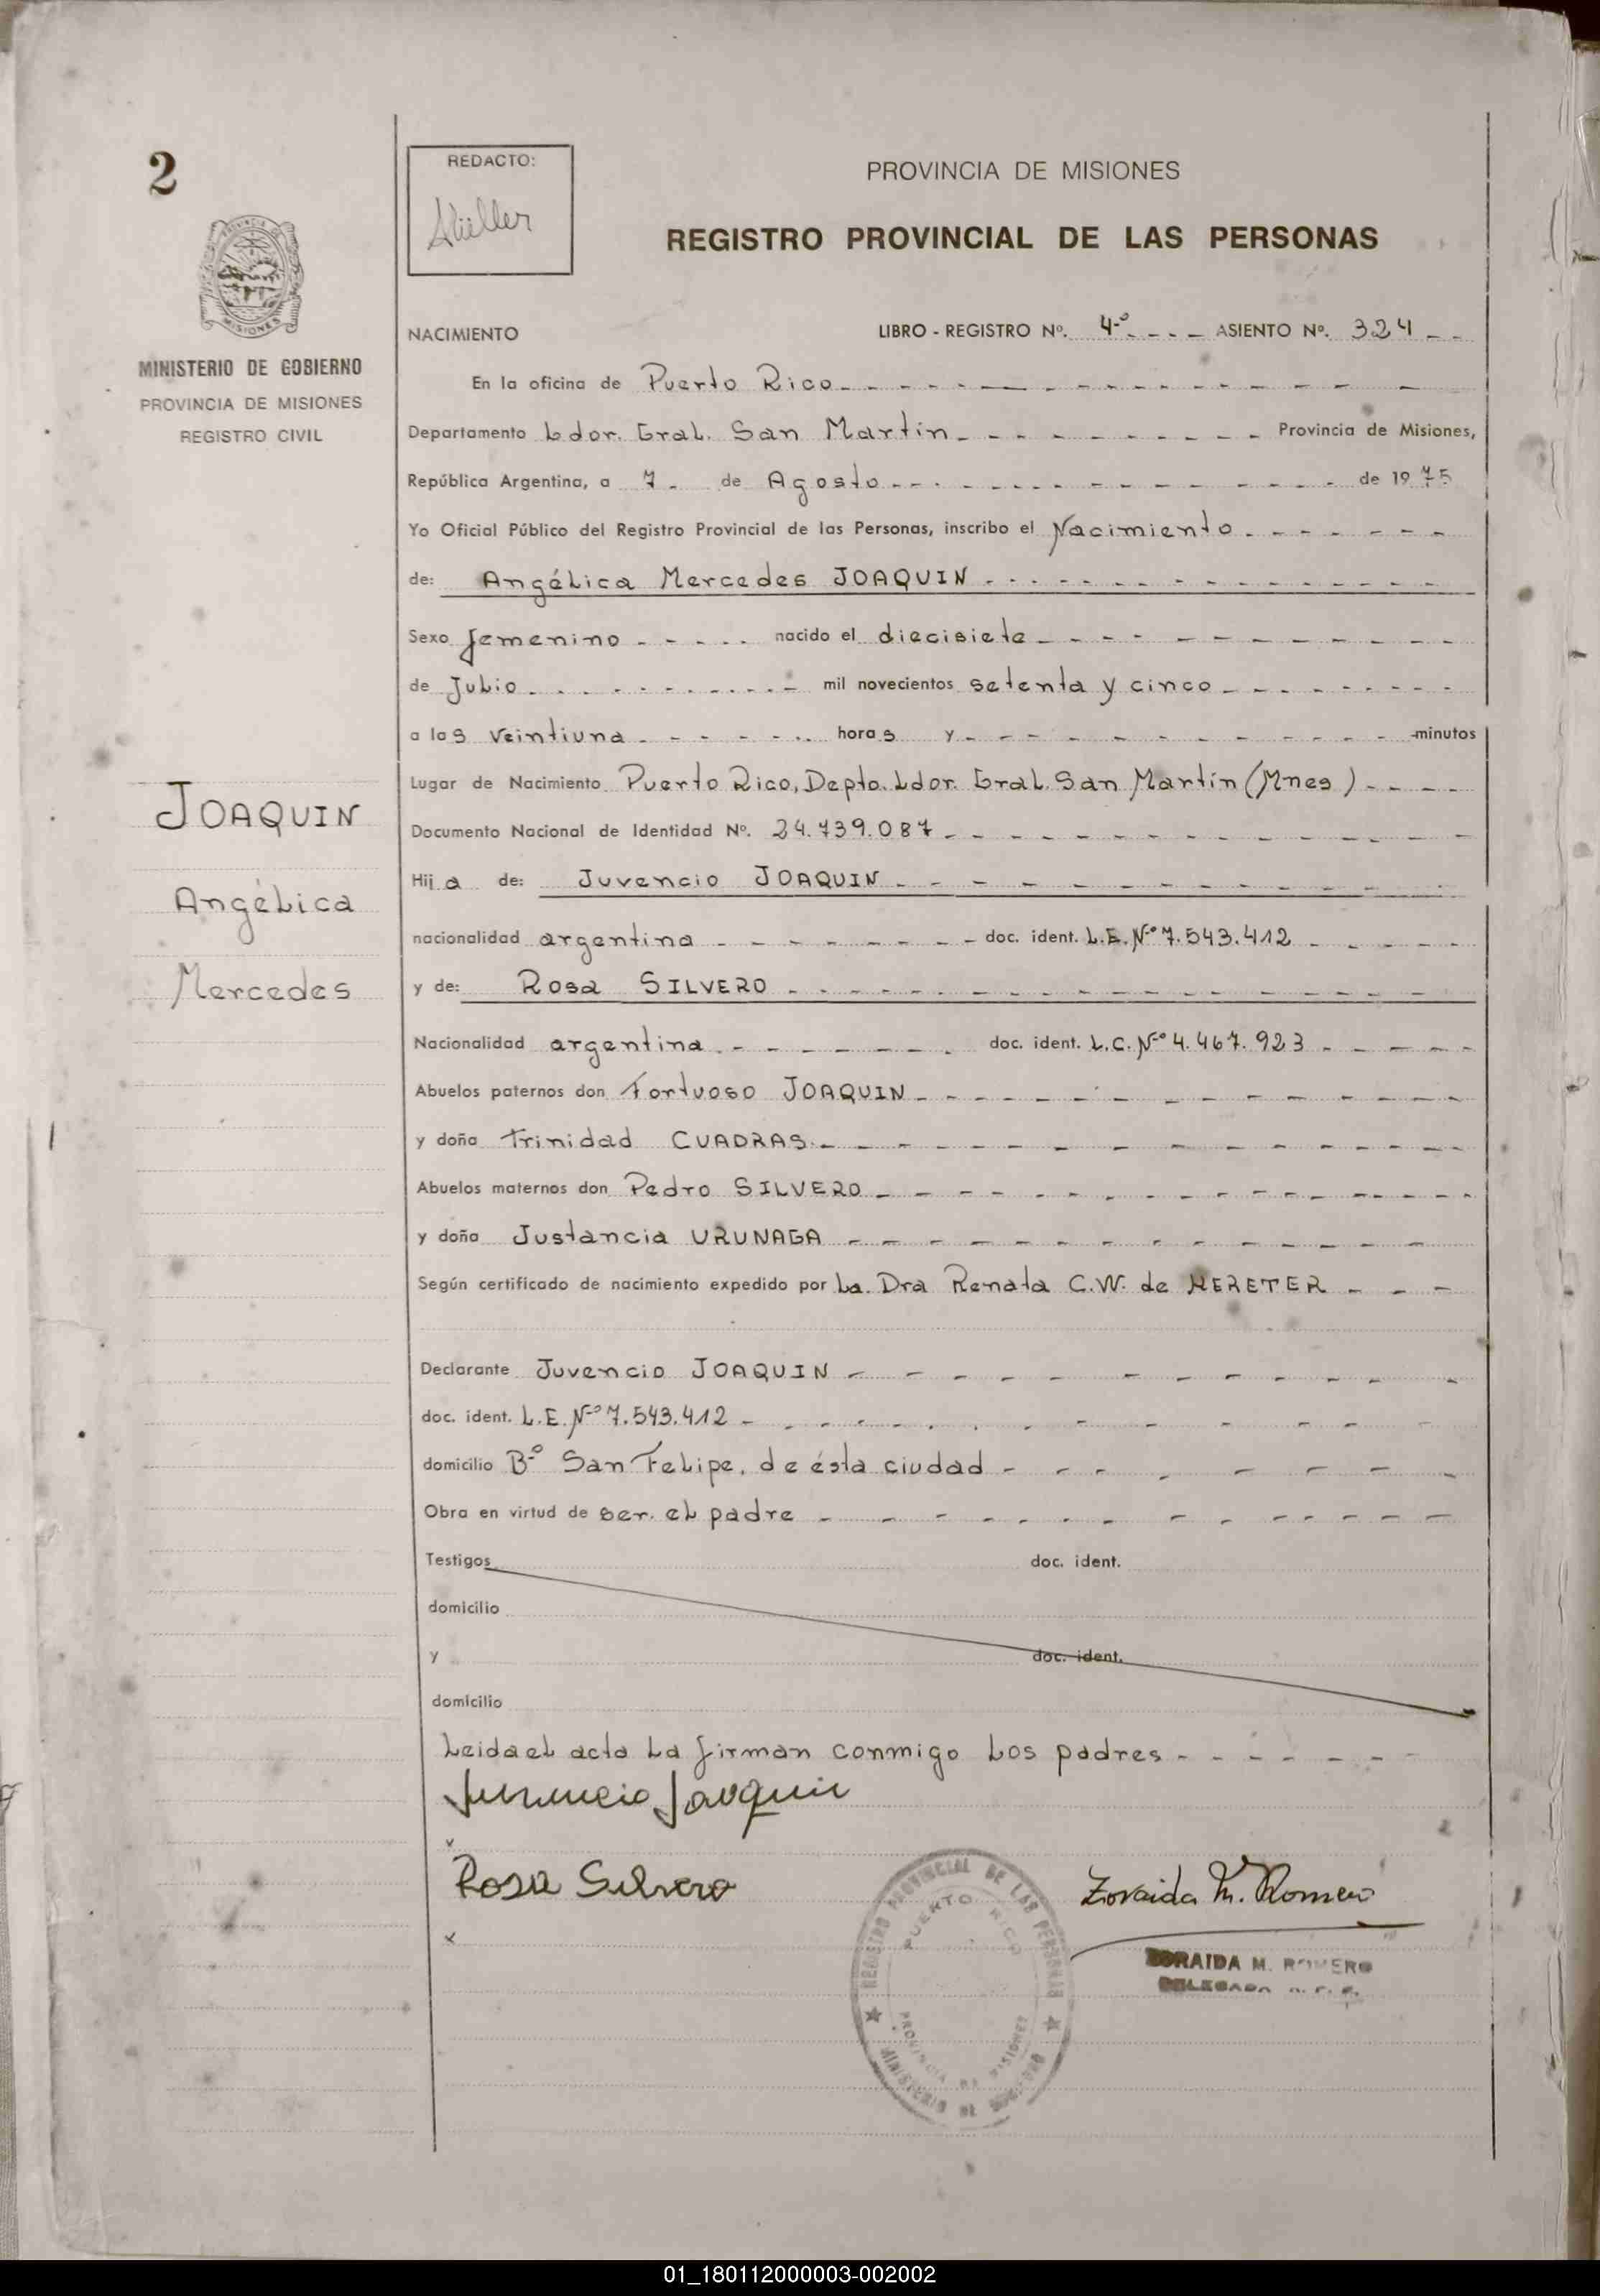 2
MISIONES
MINISTERIO DE GOBIERNO
PROVINCIA DE MISIONES
REGISTRO CIVIL
JOAQUIN
Angélica
Mercedes
REDACTO:
PROVINCIA DE MISIONES
REGISTRO PROVINCIAL DE LAS PERSONAS
NACIMIENTO LIBRO - REGISTRO Nº. 4º ASIENTO Nº. 324
En la oficina de Puerto Rico
Departamento Ldor. Gral. San Martín Provincia de Misiones,
República Argentina, a 7 de Agosto de 1975
Yo Oficial Público del Registro Provincial de las Personas, inscribo el Nacimiento
de: Angélica Mercedes JOAQUIN
Sexo femenino nacido el diecisiete
de Julio mil novecientos setenta y cinco
a las veintiuna horas y minutos
Lugar de Nacimiento Puerto Rico, Depto. Ldor. Gral. San Martín (Mnes)
Documento Nacional de Identidad Nº. 24.739.087
Hija de: Juvencio JOAQUIN
nacionalidad argentina doc. ident. L.E. Nº 7.543.412
y de: Rosa SILVERO
Nacionalidad argentina doc. ident. L.C. Nº 4.467.923
Abuelos paternos don Fortuoso JOAQUIN
y doña Trinidad CUADRAS
Abuelos maternos don Pedro SILVERO
y doña Justancia URUNAGA
Según certificado de nacimiento expedido por la Dra Renata C.W. de
Declarante Juvencio JOAQUIN
doc. ident. L.E. Nº 7.543.412
domicilio Bº San Felipe, de ésta ciudad
Obra en virtud de ser el padre
Testigos doc. ident.
domicilio
y doc. ident.
domicilio
Leida el acta la firman conmigo los padres
Juvencio Joaquin
Rosa Silvero
Zoraida M. Romero
ZORAIDA M. ROMERO
DELEGADA
REGISTRO PROVINCIAL DE LAS PERSONAS
PUERTO RICO
PROVINCIA DE MISIONES
MINISTERIO DE GOBIERNO
01_180112000003-002002